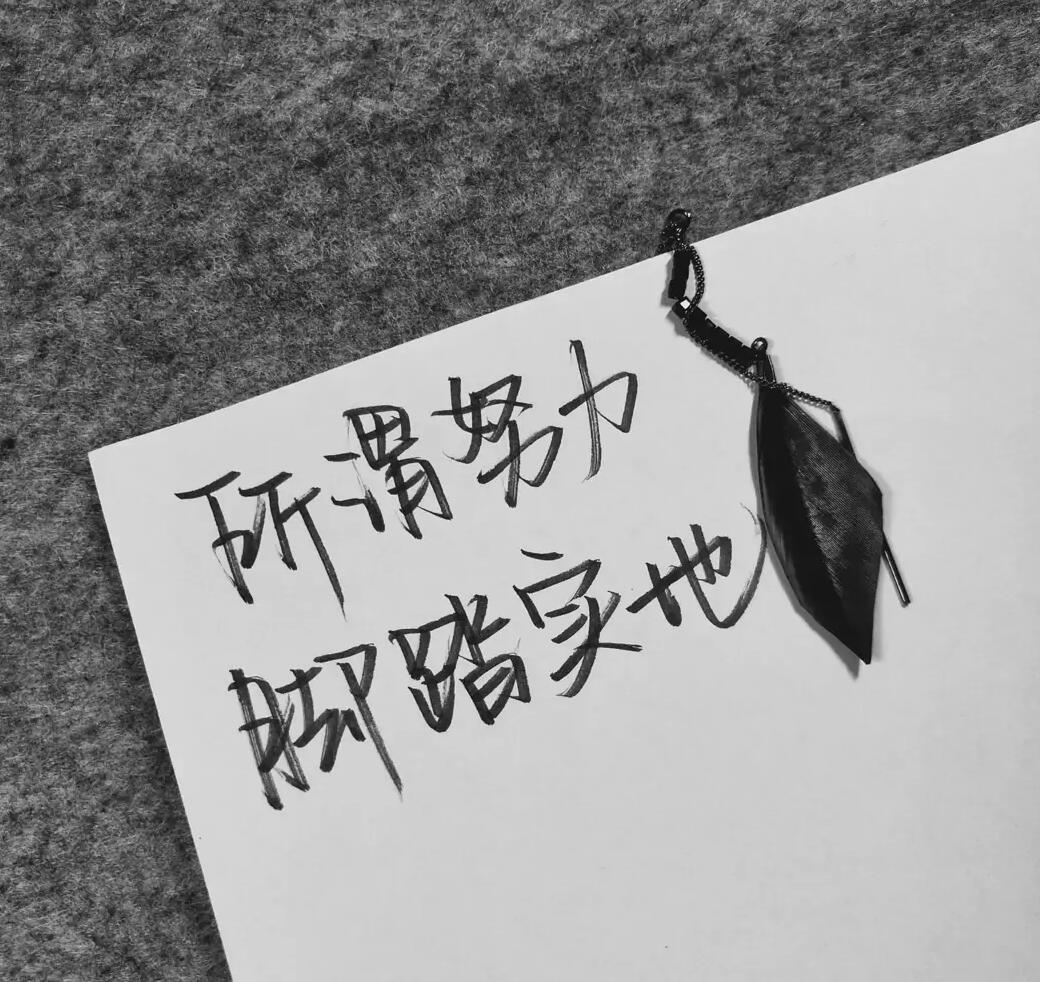 所谓努力
脚踏实地